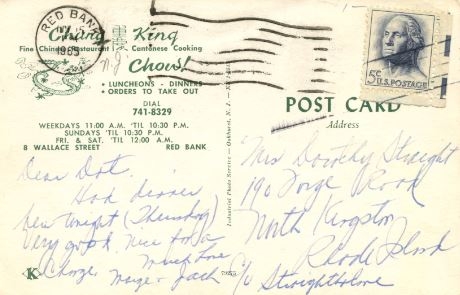 RED BANK
1965
N.J.
Chung King
Fine Chinese Restaurant Cantonese Cooking
Chows!
• LUNCHEONS - DINNERS
• ORDERS TO TAKE OUT
DIAL
741-8329
WEEKDAYS 11:00 A.M. 'TIL 10:30 P.M.
SUNDAYS 'TIL 10:30 P.M.
FRI. & SAT. 'TIL 12:00 A.M.
8 WALLACE STREET RED BANK
Dear Dot.
Had dinner
here tonight (Thursday)
Very good. Nice for a
change. Much Love
Marge + Jack
K
Industrial Photo Service - Oakhurst, N. J.
5¢ U.S. POSTAGE
POST CARD
Address
Mrs Dorothy Straight
190 Forge Road
North Kingston
Rhode Island
c/o